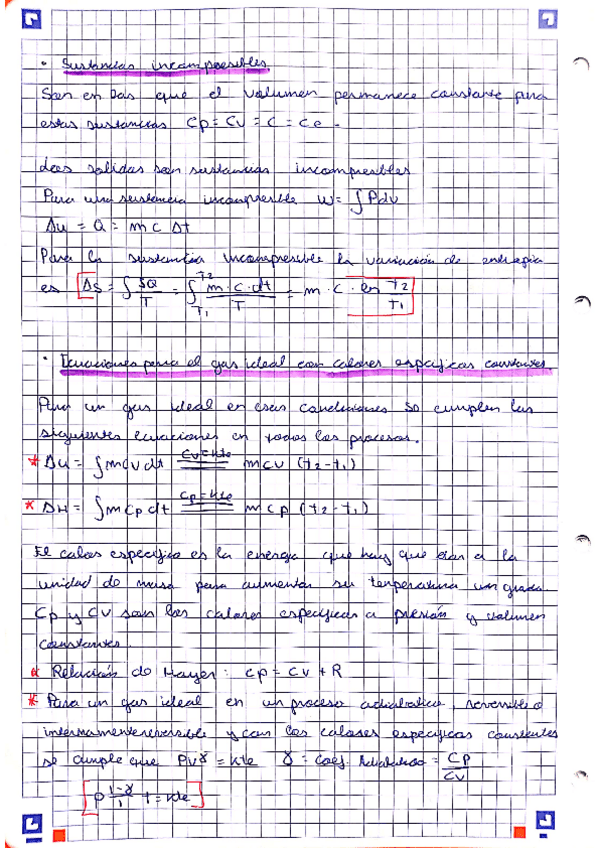 • Sustancias incompresibles
Son en las que el volumen permanece constante para
estas sustancias Cp = Cv = C = Ce.
Los solidos son sustancias incompresibles
Para una sustancia incompresible W = ∫ Pdv
Δu = Q = m c Δt
Para la sustancia incompresible la variación de entropia
es ΔS = ∫ δQ/T = ∫_{T1}^{T2} m·c·dt/T = m·c·ln T2/T1
• Ecuaciones para el gas ideal con calores especificos constantes.
Para un gas ideal en esas condiciones se cumplen las
siguientes ecuaciones en todos los procesos.
* Δu = ∫ m cv dt =(Cv=kte)= m cv (t2-t1)
* ΔH = ∫ m Cp dt =(Cp=kte)= m cp (t2-t1)
El calor especifico es la energia que hay que dar a la
unidad de masa para aumentar su temperatura un grado.
Cp y Cv son los calores especificos a presión y volumen
constantes.
* Relación de Mayer: cp = cv + R
* Para un gas ideal en un proceso adiabatico, reversible o
internamente reversible y con los calores especificos constantes
se cumple que Pvγ = kte γ = coef. Adiabatico = Cp/Cv
p^{1-γ/γ} t = kte